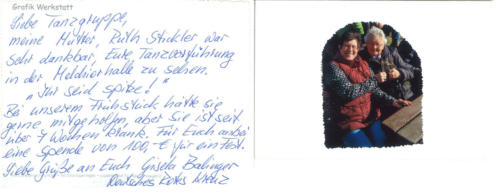 Grafik Werkstatt
Liebe Tanzgruppe,
meine Mutter, Ruth Stickler war
sehr dankbar, Eure Tanzvorführung
in der Meldorfhalle zu sehen.
„Ihr seid spitze!"
Bei unserem Frühstück hätte sie
gerne mitgeholfen, aber sie ist seit
über 7 Wochen krank. Für Euch anbei
eine Spende von 100,- € für ein Fest.
Liebe Grüße an Euch Gisela Balinger
Deutsches Rotes Kreuz